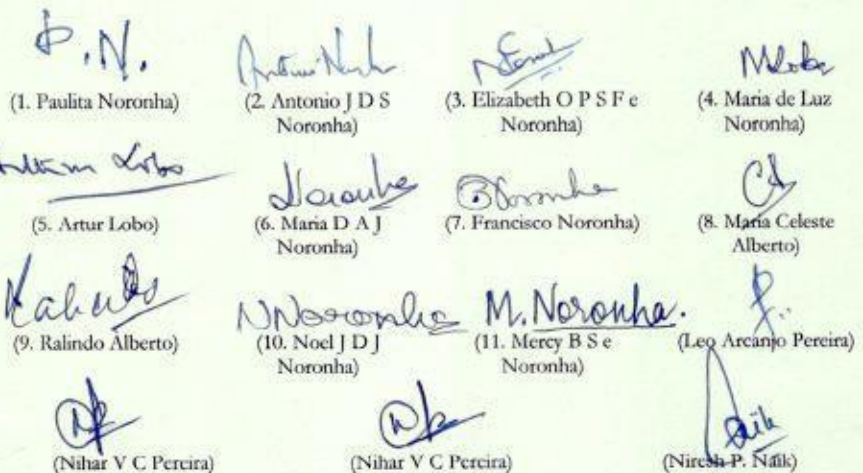 P.N.
(1. Paulita Noronha)
(2. Antonio J D S
Noronha)
(3. Elizabeth O P S F e
Noronha)
(4. Maria de Luz
Noronha)
Lobo
(5. Artur Lobo)
Noronha
(6. Maria D A J
Noronha)
Noronha
(7. Francisco Noronha)
(8. Maria Celeste
Alberto)
(9. Ralindo Alberto)
NNoronha
(10. Noel J D J
Noronha)
M. Noronha.
(11. Mercy B S e
Noronha)
(Leo Arcanjo Pereira)
(Nihar V C Pereira)
(Nihar V C Pereira)
Naik
(Niresh P. Naik)